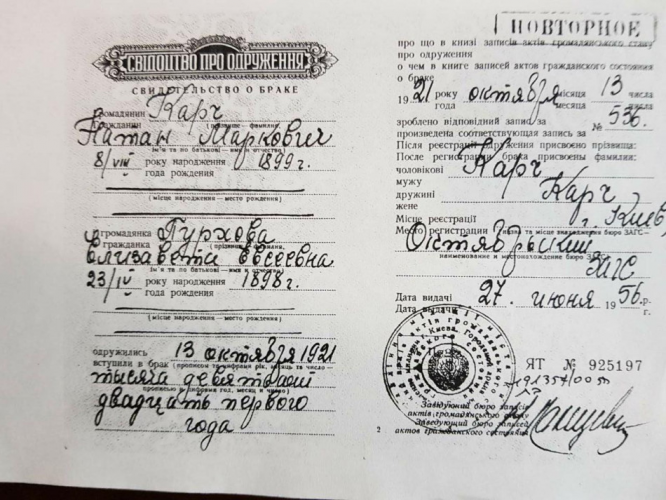 СВІДОЦТВО ПРО ОДРУЖЕННЯ
СВИДЕТЕЛЬСТВО О БРАКЕ
громадянин Карч
гражданин (прізвище — фамилия,
Натан Маркович
ім'я та по батькові — имя и отчество)
8/VIII року народження 1899 г.
года рождения
(місце народження — место рождения)
громадянка Пурхова
гражданка (прізвище — фамилия,
Елизавета Евсеевна
ім'я та по батькові — имя и отчество)
23/IV року народження 1898 г.
года рождения
(місце народження — место рождения)
одружились 13 октября 1921
вступили в брак (прописом та цифрами рік, місяць та число —
тысяча девятьсот
прописью и цифрами год, месяц и число)
двадцать первого
года
ПОВТОРНОЕ
про що в книзі записів актів громадянського стану
про одруження
о чем в книге записей актов гражданского состояния
о браке
1921 року октября місяця 13 числа
года месяца числа
зроблено відповідний запис за № 536.
произведена соответствующая запись за
Після реєстрації одруження присвоєно прізвища:
После регистрации брака присвоены фамилии:
чоловікові Карч
мужу
дружині Карч
жене
Місце реєстрації г. Киев,
Место регистрации (назва та місце знаходження бюро ЗАГС—
Октябрьский
наименование и местонахождение бюро ЗАГС)
ЗАГС
Дата видачі 27. июня 1956 р.
Дата выдачи г.
ЯТ № 925197
Завідуючий бюро записів
актів громадянського стану
Заведующий бюро записей
актов гражданского состояния
2